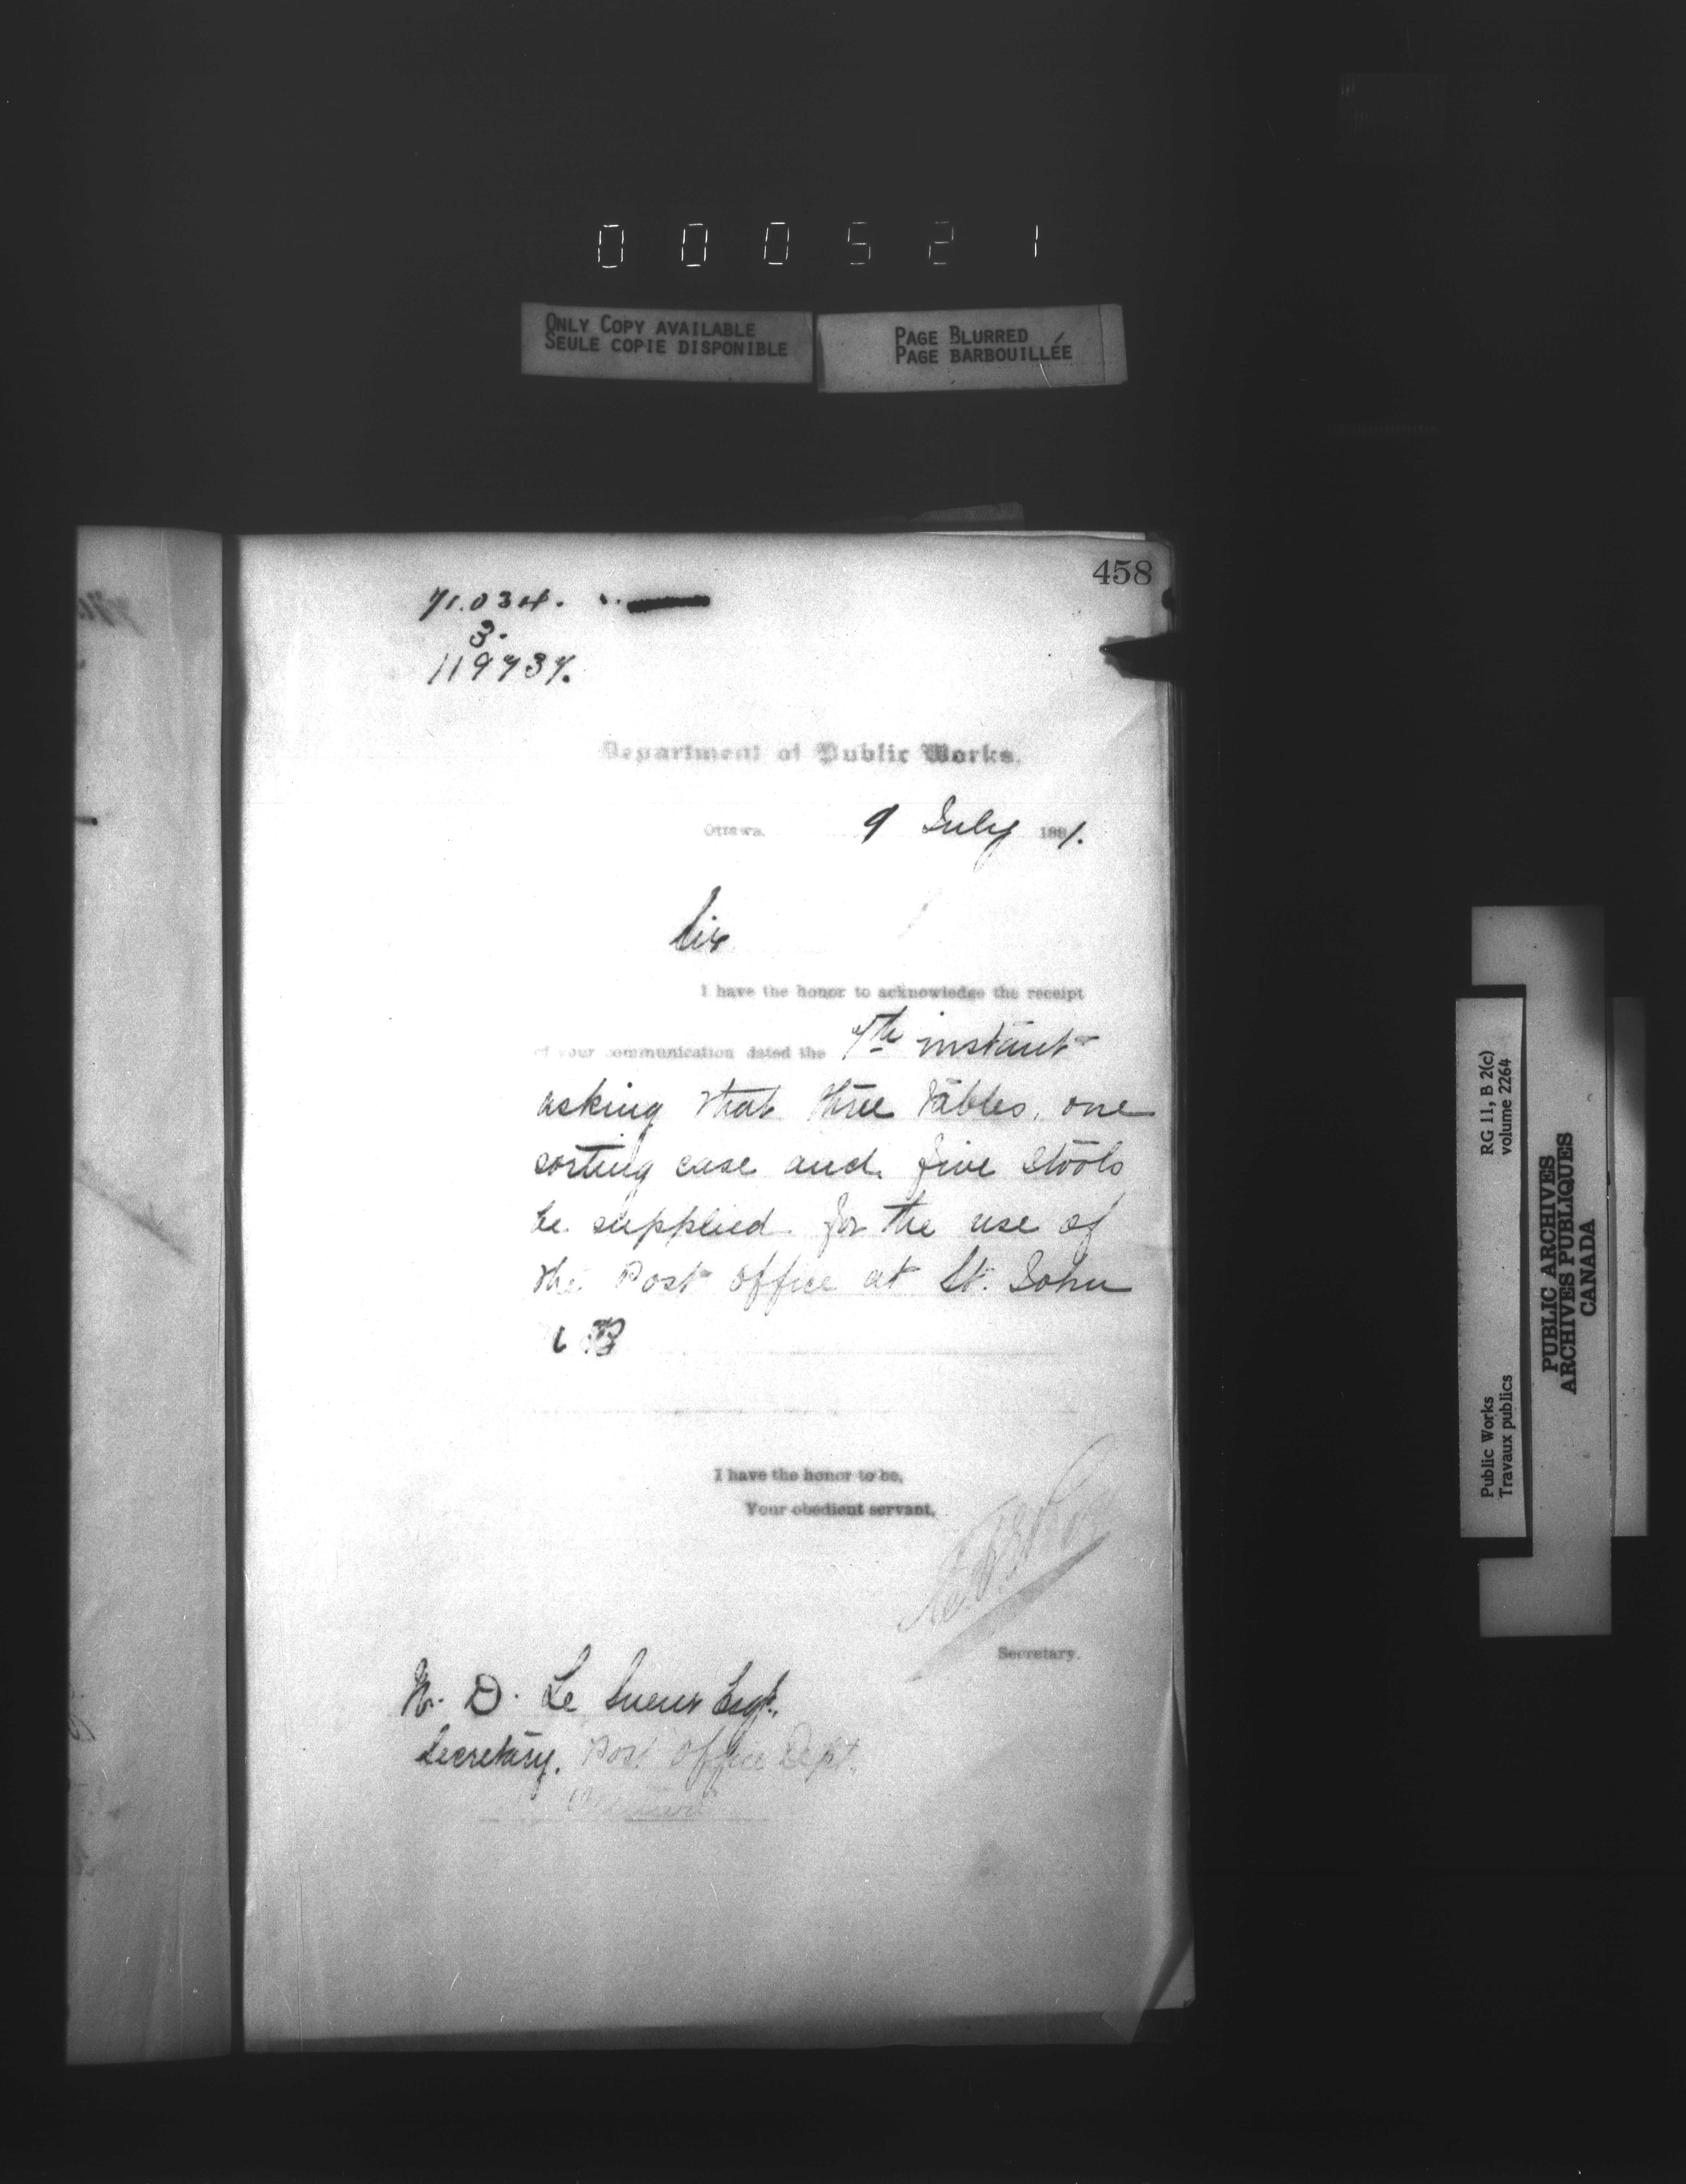 0 0 0 5 2 1
ONLY COPY AVAILABLE
SEULE COPIE DISPONIBLE
PAGE BLURRED
PAGE BARBOUILLÉE
458
71.034.
3.
119737.
Department of Public Works.
Ottawa. 9 July 1881.
Sir
I have the honor to acknowledge the receipt
of your communication dated the 7th instant
asking that three tables, one
sorting case and five stools
be supplied for the use of
the Post Office at St. John
B
I have the honor to be,
Your obedient servant,
Secretary.
W. D. Le Sueur Esqr.
Secretary. Post Office Dept.
Ottawa
RG 11, B 2(c)
volume 2264
Public Works
Travaux publics
PUBLIC ARCHIVES
ARCHIVES PUBLIQUES
CANADA